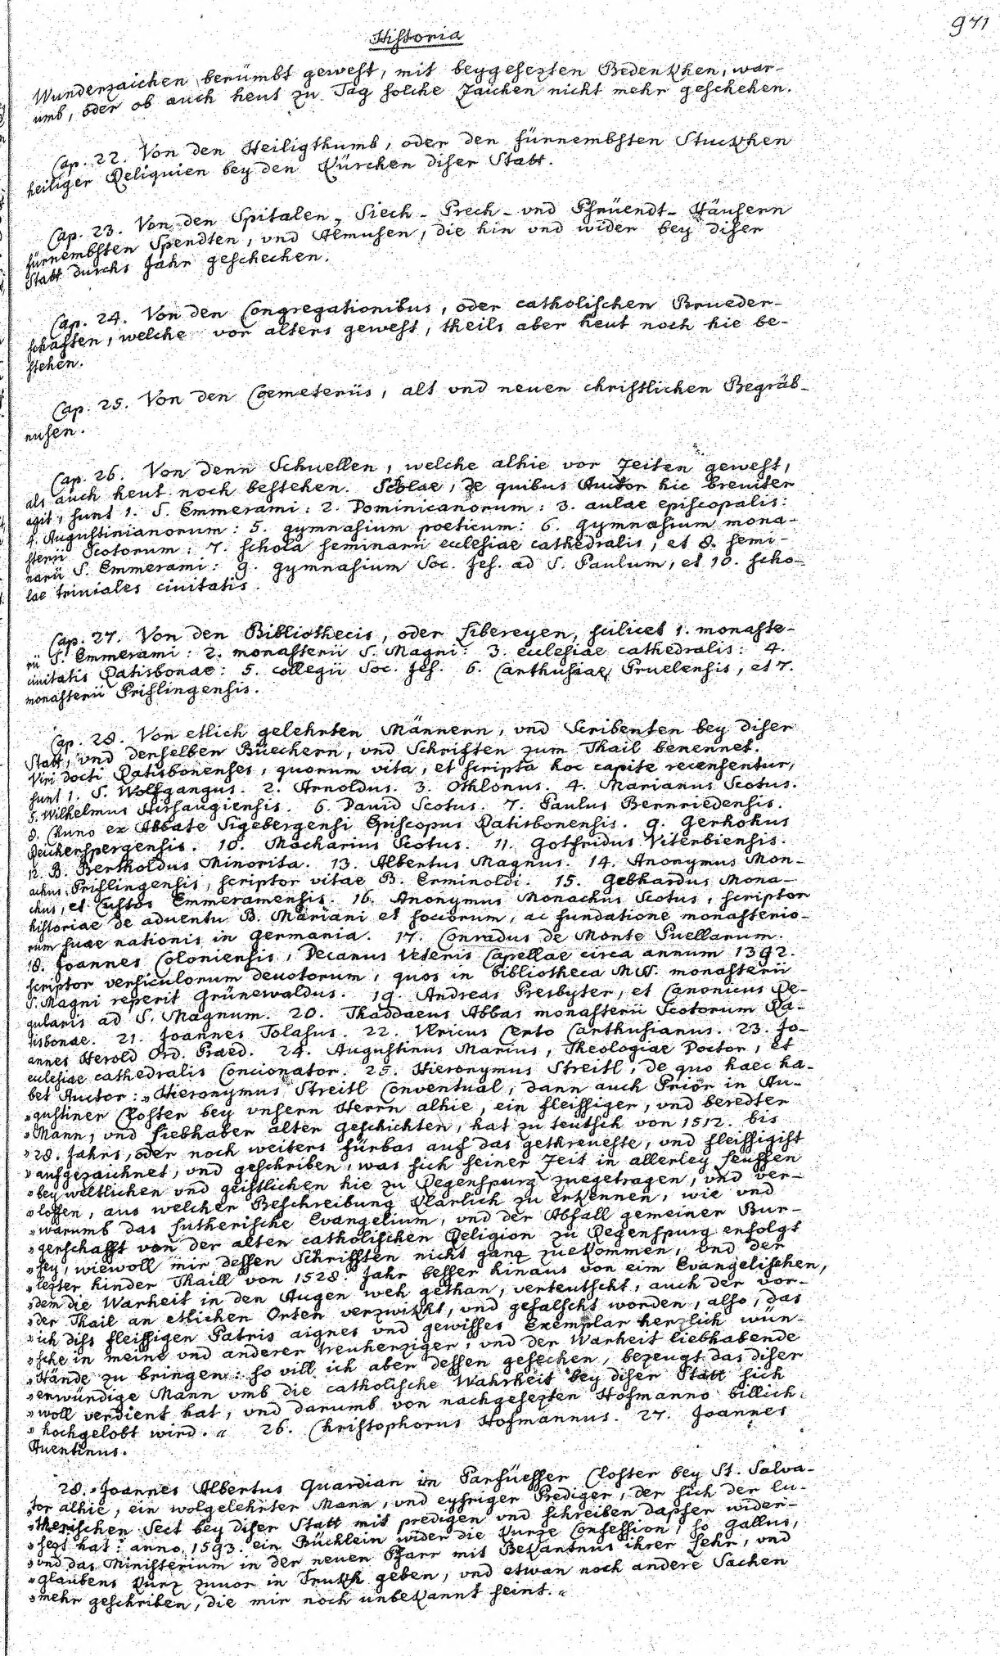 Historia
971
Wunderzaichen berümbt gewest, mit beygesezten Bedenkhen, war-
umb, oder ob auch heut zu Tag solche Zaichen nicht mehr geschehen.
Cap. 22. Von den Heiligthumb, oder den fürnembsten Stuckhen
heiliger Reliquien bey den Kürchen diser Statt.
Cap. 23. Von den Spitalen, Siech- Prech- und Pfrüendt- Häusern
fürnembsten Spendten, und Almusen, die hin und wider bey diser
Statt durchs Jahr geschechen.
Cap. 24. Von den Congregationibus, oder catholischen Brueder-
schafften, welche vor alters gewest, theils aber heut noch hie be-
stehen.
Cap. 25. Von den Coemeteriis, alt und neuen christlichen Begräb-
nusen.
Cap. 26. Von denn Schuellen, welche alhie vor Zeiten gewest,
als auch heut noch bestehen. Scolae, de quibus Auctor hic breviter
agit, sunt 1. S. Emmerami: 2. Dominicanorum: 3. aulae episcopalis:
4. Augustinianorum: 5. gymnasium poeticum: 6. gymnasium mona-
sterii Scotorum: 7. schola seminarii ecclesiae cathedralis, et 8. semi-
narii S. Emmerami: 9. gymnasium Soc. Jes. ad S. Paulum, et 10. scho-
lae triviales civitatis.
Cap. 27. Von den Bibliothecis, oder Libereyen, scilicet 1. monaste-
rii S. Emmerami: 2. monasterii S. Magni: 3. ecclesiae cathedralis: 4.
civitatis Ratisbonae: 5. collegii Soc. Jes. 6. Carthusiae Pruelensis, et 7.
monasterii Prislingensis.
Cap. 28. Von etlich gelehrten Männern, und Scribenten bey diser
Statt, und derselben Büechern, und Schriften zum Thail benennet.
Viri docti Ratisbonenses, quorum vita, et scripta hoc capite recensentur,
sunt 1. S. Wolfgangus. 2. Arnoldus. 3. Othlonus. 4. Marianus Scotus.
5. Wilhelmus Hirsaugiensis. 6. David Scotus. 7. Paulus Bernriedensis.
8. Chuno ex Abbate Sigebergensi Episcopus Ratisbonensis. 9. Gerhohus
Reicherspergensis. 10. Macharius Scotus. 11. Gothfridus Viterbiensis.
12. B. Bertholdus Minorita. 13. Albertus Magnus. 14. Anonymus Mon-
achus Prislingensis, scriptor vitae B. Erminoldi. 15. Gebhardus Mona-
chus, et Custos Emmeramensis. 16. Anonymus Monachus Scotus, scriptor
historiae de adventu B. Mariani et sociorum, ac fundatione monasterio-
rum suae nationis in Germania. 17. Conradus de Monte Puellarum.
18. Joannes Coloniensis, Decanus Veteris Capellae circa annum 1392.
scriptor versiculorum devotorum, quos in bibliotheca MSS. monasterii
S. Magni reperit Grünewaldus. 19. Andreas Presbyter, et Canonicus Re-
gularis ad S. Magnum. 20. Thaddaeus Abbas monasterii Scotorum Ra-
tisbonae. 21. Joannes Tolasus. 22. Ulricus Certo Carthusianus. 23. Jo-
annes Herold Ord. Praed. 24. Augustinus Marius, Theologiae Doctor, et
ecclesiae cathedralis Concionator. 25. Hieronymus Streitl, de quo haec ha-
bet Auctor: „Hieronymus Streitl Conventual, dann auch Prior in Au-
„gustiner Closter bey unsern Herrn alhie, ein fleissiger, und beredter
„Mann, und Liebhaber alter geschichten, hat zu teutsch von 1512. bis
„28. Jahrs, oder noch weiters fürbas auf das getreueste, und fleissigist
„aufgezaichnet, und geschriben, was sich seiner Zeit in allerley Leuffen
„bey weltlichen und geistlichen hie zu Regenspurg zuegetragen, und ver-
„loffen, aus welcher Beschreibung klärlich zu erkennen, wie und
„warumb das Lutherische Evangelium, und der Abfall gemeiner Bur-
„gerschafft von der alten catholischen Religion zu Regenspurg erfolgt
„sey, wiewoll mir dessen Schrifften nicht ganz zuekommen, und der
„lezter hinder Thaill von 1528. Jahr besser hinaus von eim Evangelischen,
„dem die Warheit in den Augen weh gethan, verteutscht, auch der vor-
„der Thail an etlichen Orten verzwikht, und gefälscht worden, also, das
„ich diss fleissigen Patris aignes und gewisses Exemplar herzlich wün-
„sche in meine und anderer treuherziger, und der Warheit liebhabende
„Hände zu bringen: so vill ich aber dessen gesechen, bezeugt das diser
„erwürdige Mann umb die catholische Wahrheit bey diser Statt sich
„woll verdient hat, und darumb von nachgesezten Hofmanno billich
„hochgelobt wird.“ 26. Christophorus Hofmannus. 27. Joannes
Aventinus.
28. „Joannes Albertus Guardian in Parfüesser Closter bey St. Salva-
„tor alhie, ein wolgelehrter Mann, und eyfriger Prediger, der sich der lu-
„therischen Sect bey diser Statt mit predigen und schreiben dapfer wider-
„sezt hat: anno 1593. ein Büchlein wider die kurze Confession, so Gallus,
„und das Ministerium in der neuen Pfarr mit Bekantnus ihrer Lehr, und
„glaubens kurz zuvor in Trukh geben, und etwan noch andere Sachen
„mehr geschriben, die mir noch unbekannt seint.“